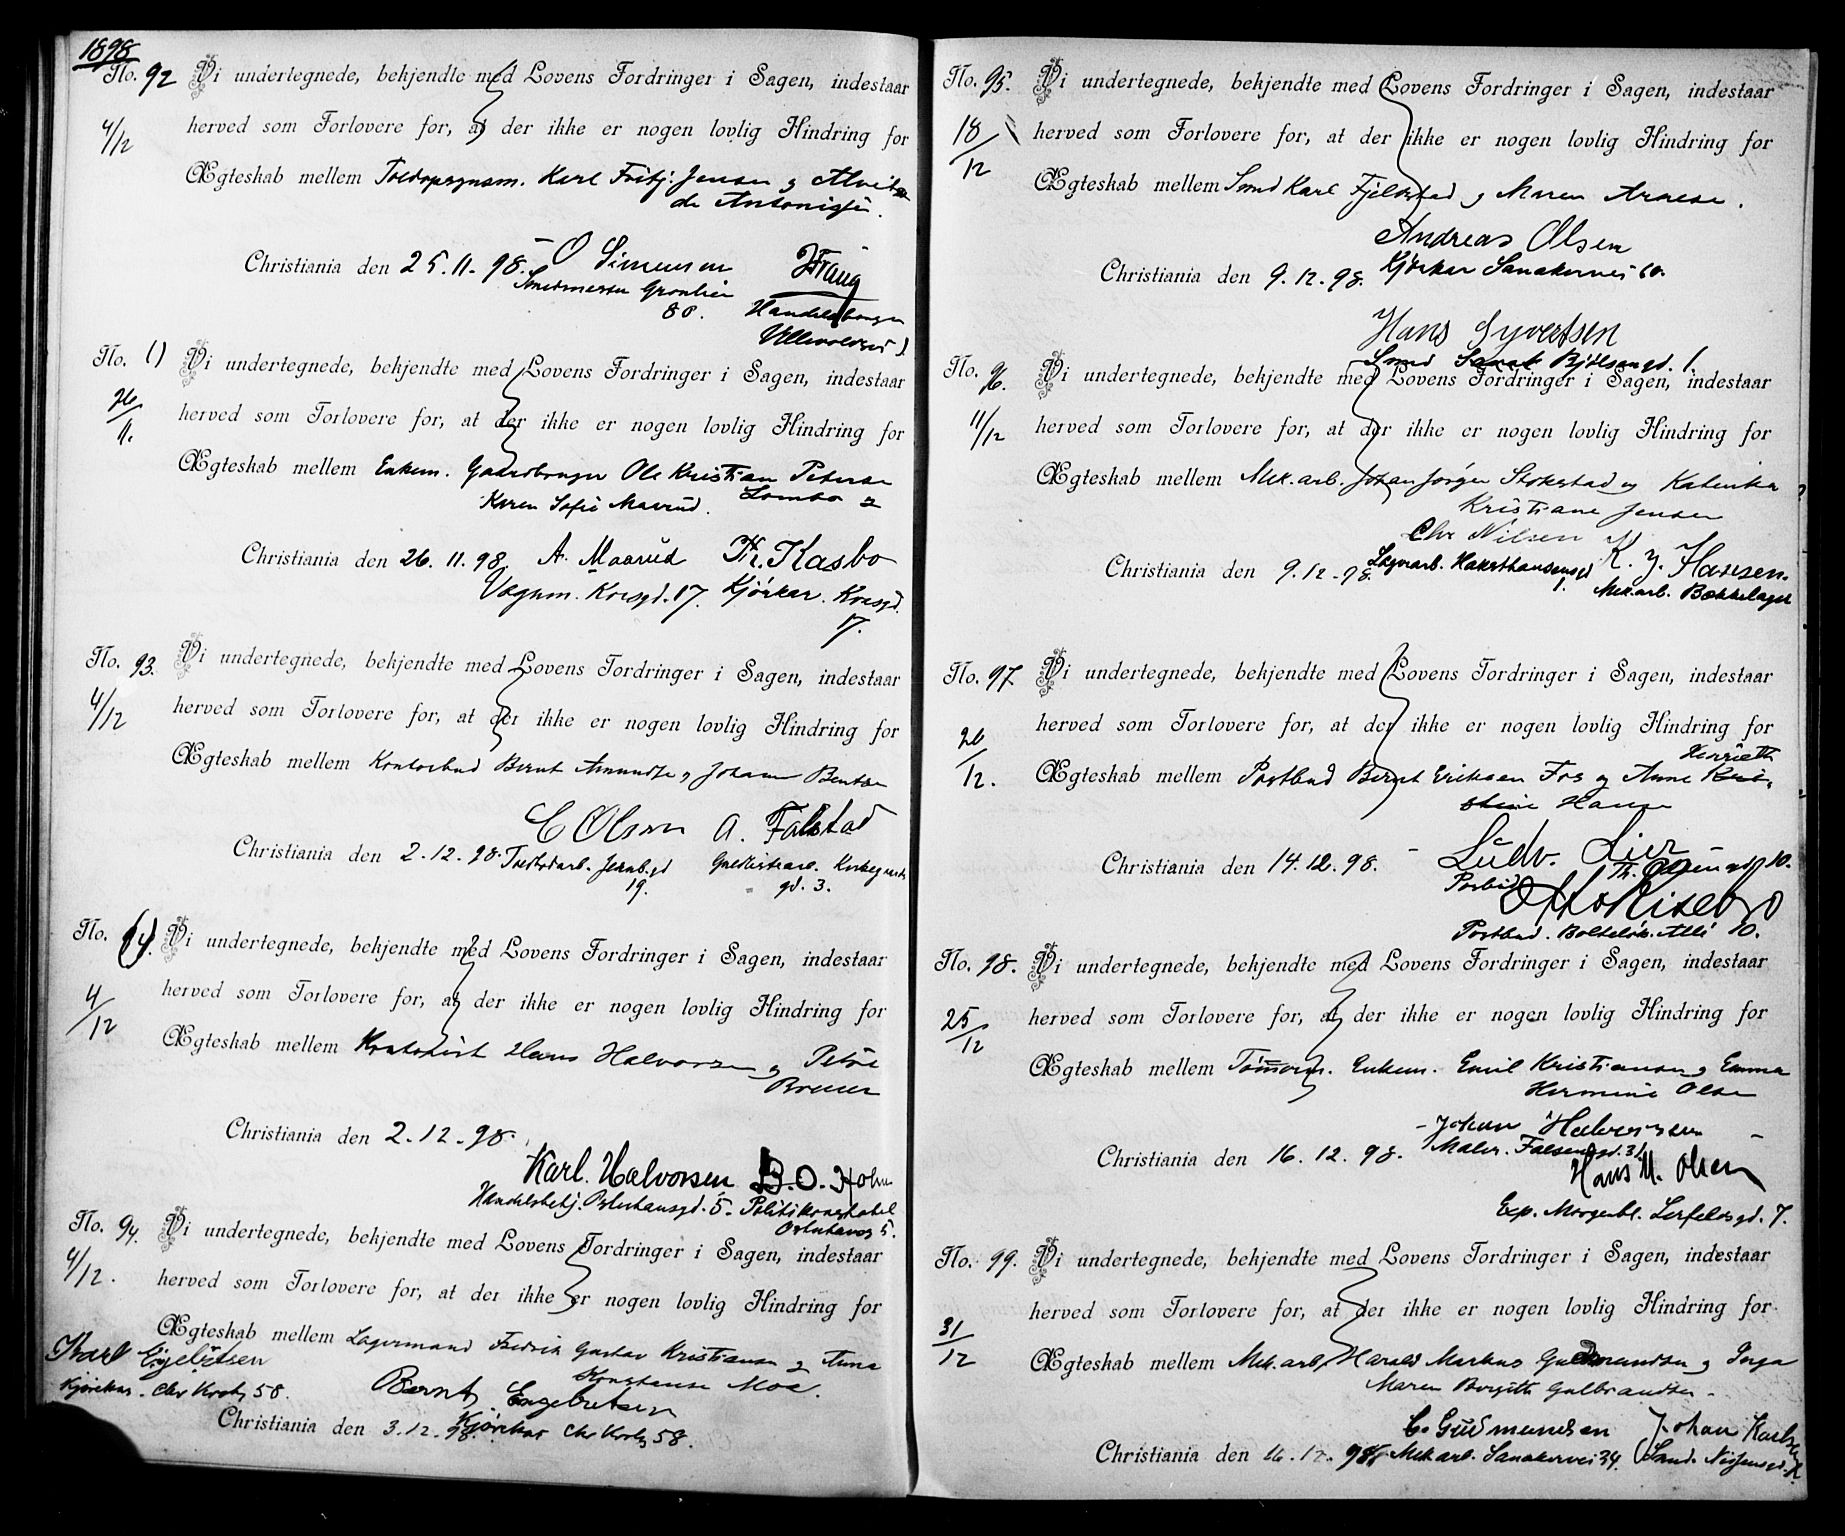 1898
No. 92 Vi undertegnede, bekjendte med Lovens Fordringer i Sagen, indestaar
4/12 herved som Forlovere for, at der ikke er nogen lovlig Hindring for
Ægteskab mellem Toldopsynsm. Karl Fritj. Jensen og Alvil
de Antonisen.
Christiania den 25.11.98. O Simensen
Smedmester Grønlien Handelsborger
80. Ullevoldsvei 1
No. () Vi undertegnede, bekjendte med Lovens Fordringer i Sagen, indestaar
26/11. herved som Forlovere for, at der ikke er nogen lovlig Hindring for
Ægteskab mellem Enkem. Gaardbruger Ole Kristian Peterse
Karen Sofie Maarud. Lombo og
Christiania den 26.11.98 A. Maarud Th. Kasbo
Vognm. Korsgd. 17. Kjørkar. Korsgd.
17.
No. 93. Vi undertegnede, bekjendte med Lovens Fordringer i Sagen, indestaar
4/12 herved som Forlovere for, at der ikke er nogen lovlig Hindring for
Ægteskab mellem Kontorbud Bernt Amundse og Johanne Bentse
C Olsen A. Falstad
Christiania den 2.12.98. Jernb.gd Kirkegaards
19. gd. 3.
No. () Vi undertegnede, bekjendte med Lovens Fordringer i Sagen, indestaar
4/12 herved som Forlovere for, at der ikke er nogen lovlig Hindring for
Ægteskab mellem Kontorist Hans Halvorsen og Petre
Christiania den 2.12.98.
Karl. Halvorsen B. O. Holm
Handelsbetj. Osterhausgd. 5. Politikonstabel
Osterhausg 5.
No. 94. Vi undertegnede, bekjendte med Lovens Fordringer i Sagen, indestaar
4/12. herved som Forlovere for, at der ikke er nogen lovlig Hindring for
Ægteskab mellem Lagermand Fredrik Gustav Kristiansen og Anna
Konstanse Moe.
Karl Engebretsen
Kjørekar. Chr Krohg 58. Bernt Engebretsen
Christiania den 3.12.98. Kjørekar Chr Krohg 58.
No. 95. Vi undertegnede, bekjendte med Lovens Fordringer i Sagen, indestaar
18/12 herved som Forlovere for, at der ikke er nogen lovlig Hindring for
Ægteskab mellem Smed Karl Fjeldstad og Maren Arnese.
Andreas Olsen
Christiania den 9.12.98. Kjørkar Sanakervei 60.
Hans Syvertsen
Smed Sanak Bjølsengd. 1.
No. 96. Vi undertegnede, bekjendte med Lovens Fordringer i Sagen, indestaar
11/12 herved som Forlovere for, at der ikke er nogen lovlig Hindring for
Ægteskab mellem Mek.arb. Johan Jørgen Stokstad og Katinka
Kristiane Jensen
Chr Nilsen K. J. Hansen.
Christiania den 9.12.98. Lagerarb. Haksthausensgd
1. Mek.arb. Bækkelaget
No. 97. Vi undertegnede, bekjendte med Lovens Fordringer i Sagen, indestaar
26/12. herved som Forlovere for, at der ikke er nogen lovlig Hindring for
Henriette
Ægteskab mellem Postbud Bernt Eriksen Fos og Anne Kri
stine Hanse
Christiania den 14.12.98. Ludv. Lier
Postbud 10.
Otto Risebro
Postbud. Bolteløk. Allé 10.
No. 98. Vi undertegnede, bekjendte med Lovens Fordringer i Sagen, indestaar
25/12 herved som Forlovere for, at der ikke er nogen lovlig Hindring for
Ægteskab mellem Tømmerm. Enkem. Emil Kristiansen og Emma
Hermine Olse
Johan Halvorsen
Christiania den 16.12.98. Maler. Falsensgd. 31
Hans M. Olsen
Exp. Morgenbl. Lerfeldsgd. 7.
No. 99. Vi undertegnede, bekjendte med Lovens Fordringer i Sagen, indestaar
31/12 herved som Forlovere for, at der ikke er nogen lovlig Hindring for
Ægteskab mellem Mek.arb. Harald Markus Gudmundsen og Inga
Maren Birgitte Gulbrandse
C. Gudmundsen Johan Karlsen
Christiania den 16.12.98. Mek.arb. Sanakervei 34.